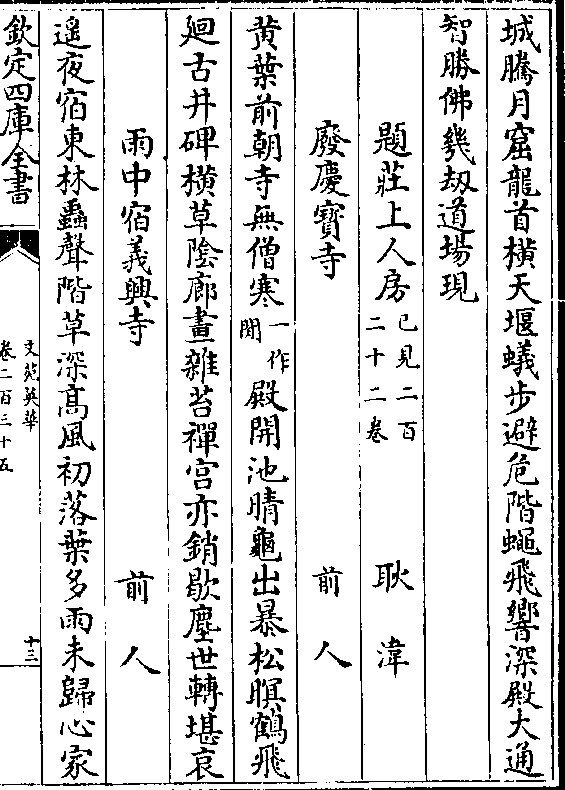 城騰月窟龍首橫天堰蟻步避危階蠅飛響深殿大通
智勝佛幾劫道場現
題莊上人房已見二百二十二卷 耿湋
廢慶寳寺 前人
黄葉前朝寺無僧寒一作閉殿開池晴龜出暴松瞑鶴飛
廻古井碑橫草陰廊畫雜苔禪宫亦銷歇塵世轉堪哀
雨中宿義興寺 前人
遥夜宿東林蟲聲階草深髙風初落葉多雨未歸心家
欽定四庫全書
文苑英華
卷二百三十五
十三